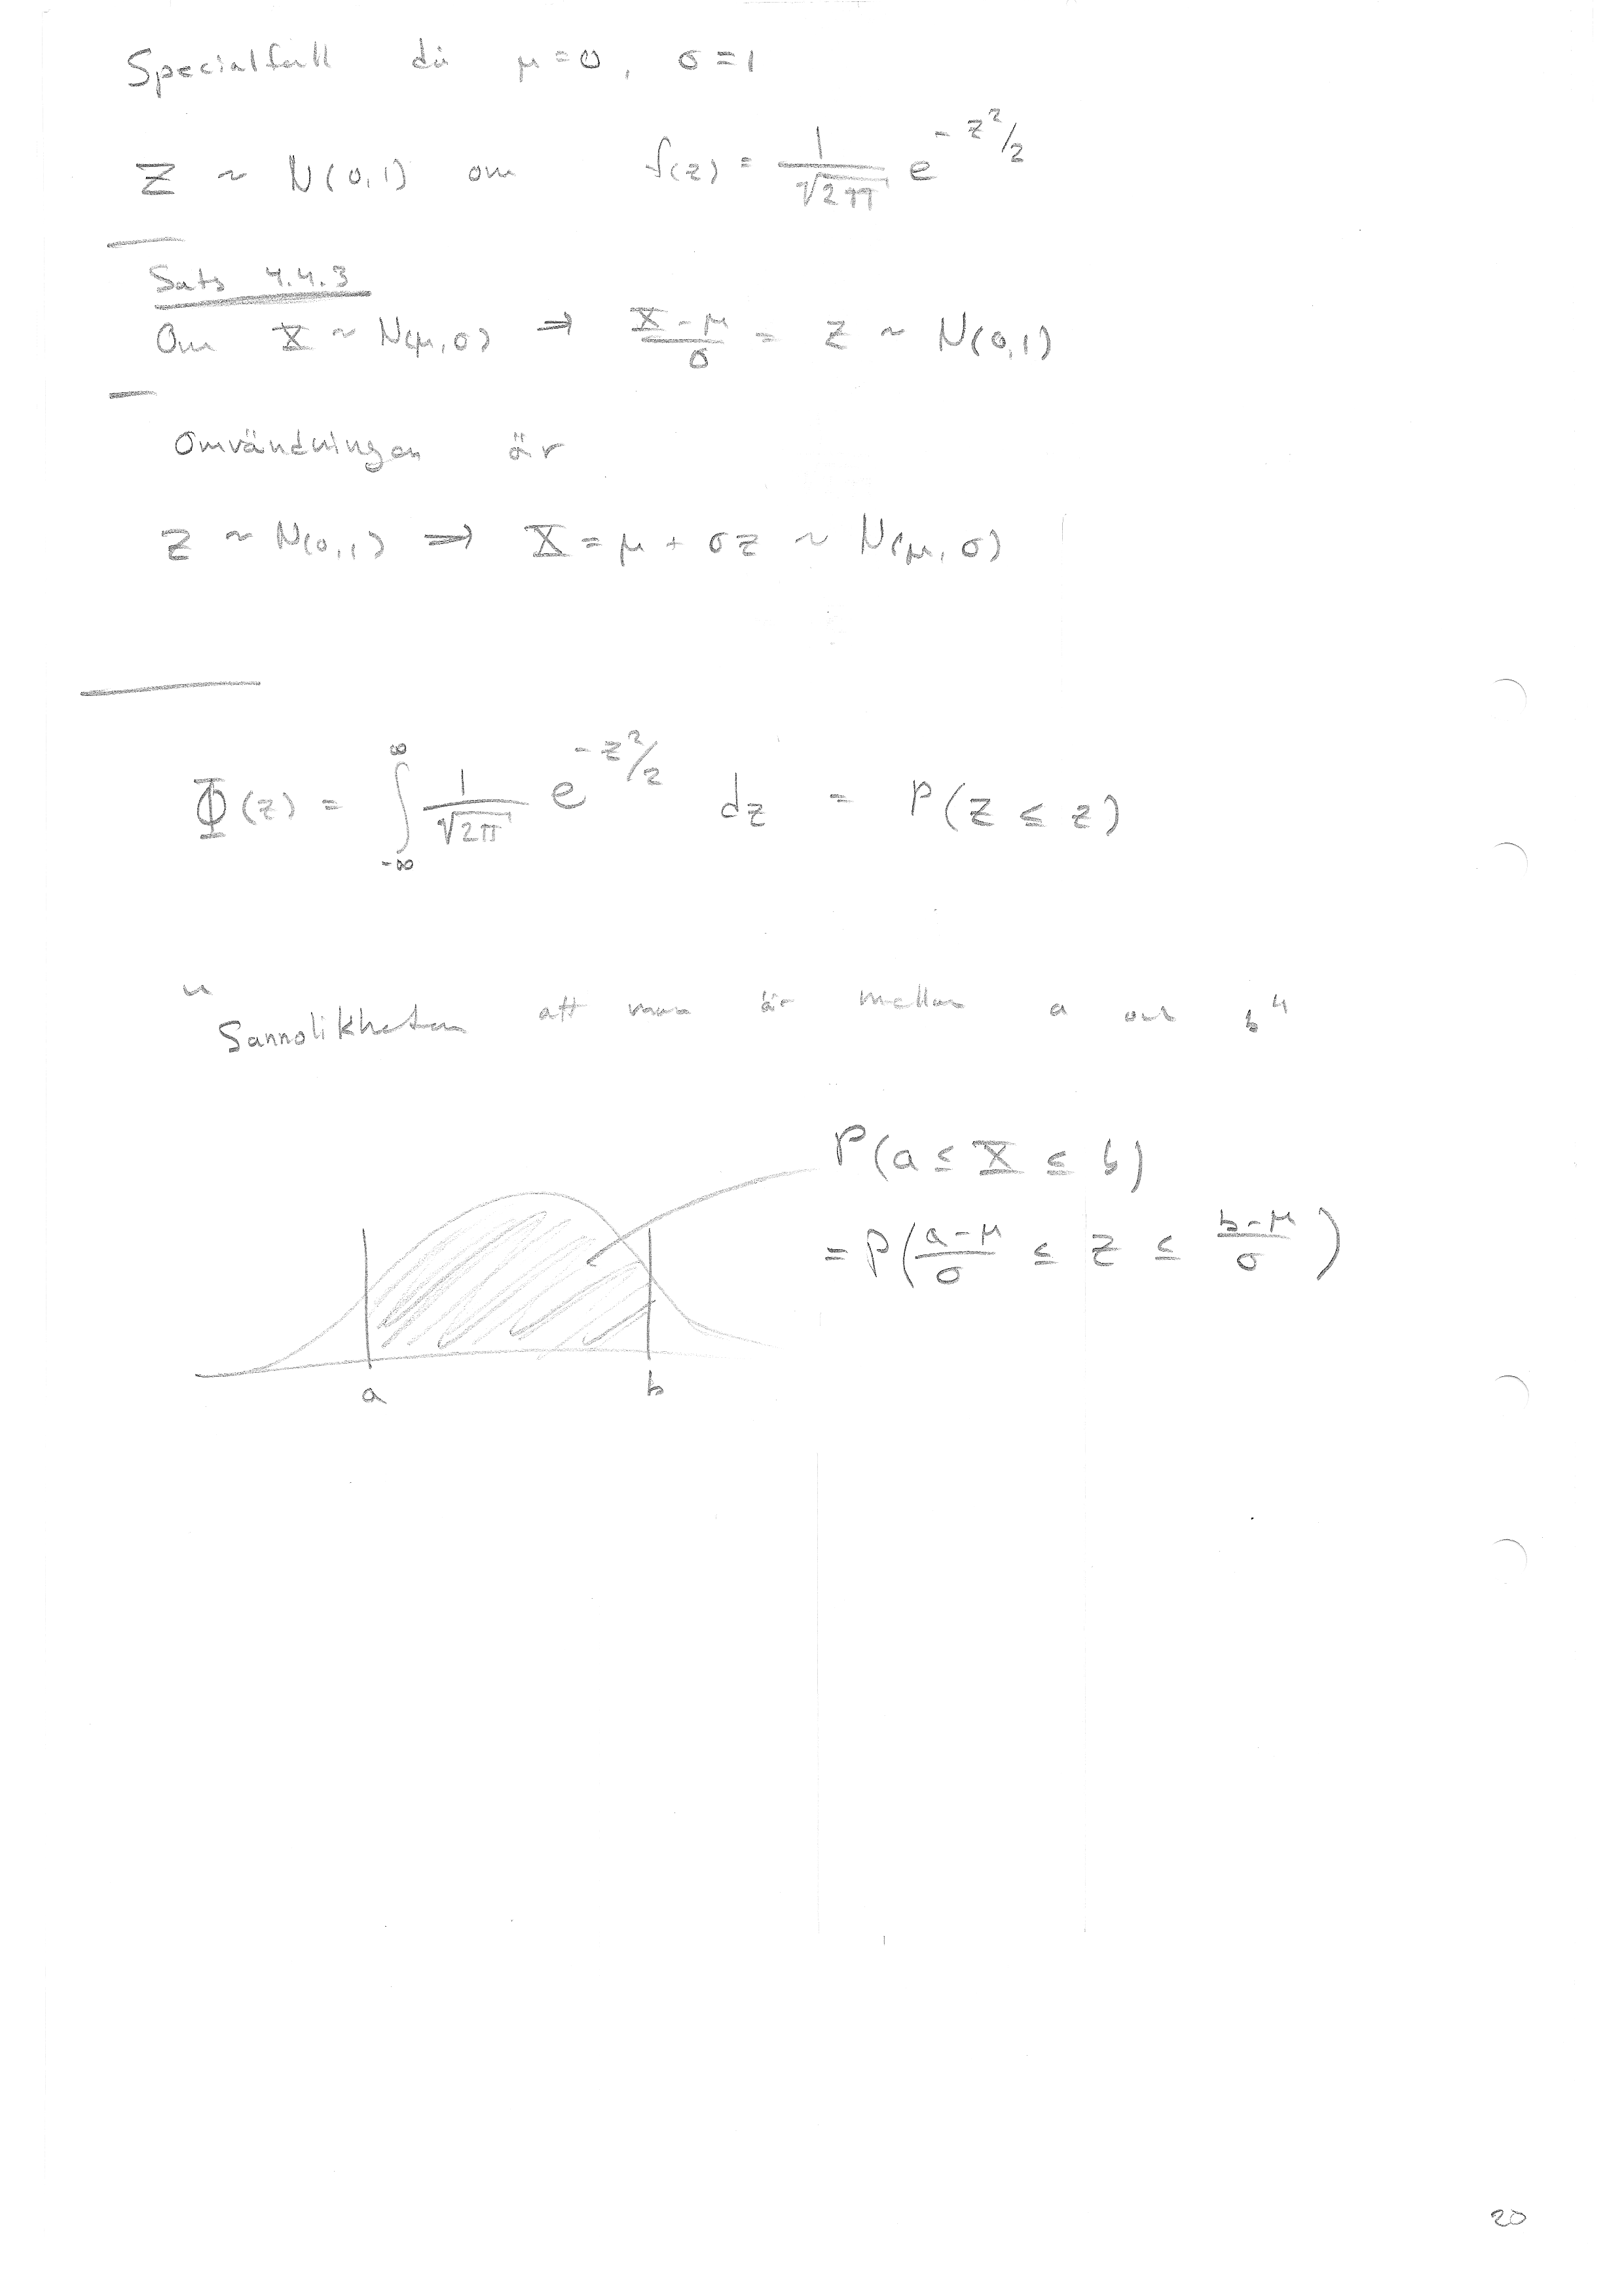 Specialfall då μ=0, σ=1
Z ~ N(0,1) om f(z) = 1/√2π e^-z²/2
Sats 4.4.3
Om X ~ N(μ,σ) ⇒ X-μ/σ = Z ~ N(0,1)
Omvändningen är
Z ~ N(0,1) ⇒ X = μ + σz ~ N(μ, σ)
Φ(z) = ∫_-∞^∞ 1/√2π e^-z²/2 dz = P(Z ≤ z)
"Sannolikheten att vara är mellan a och b"
P(a ≤ X ≤ b)
= P(a-μ/σ ≤ Z ≤ b-μ/σ)
a b
20